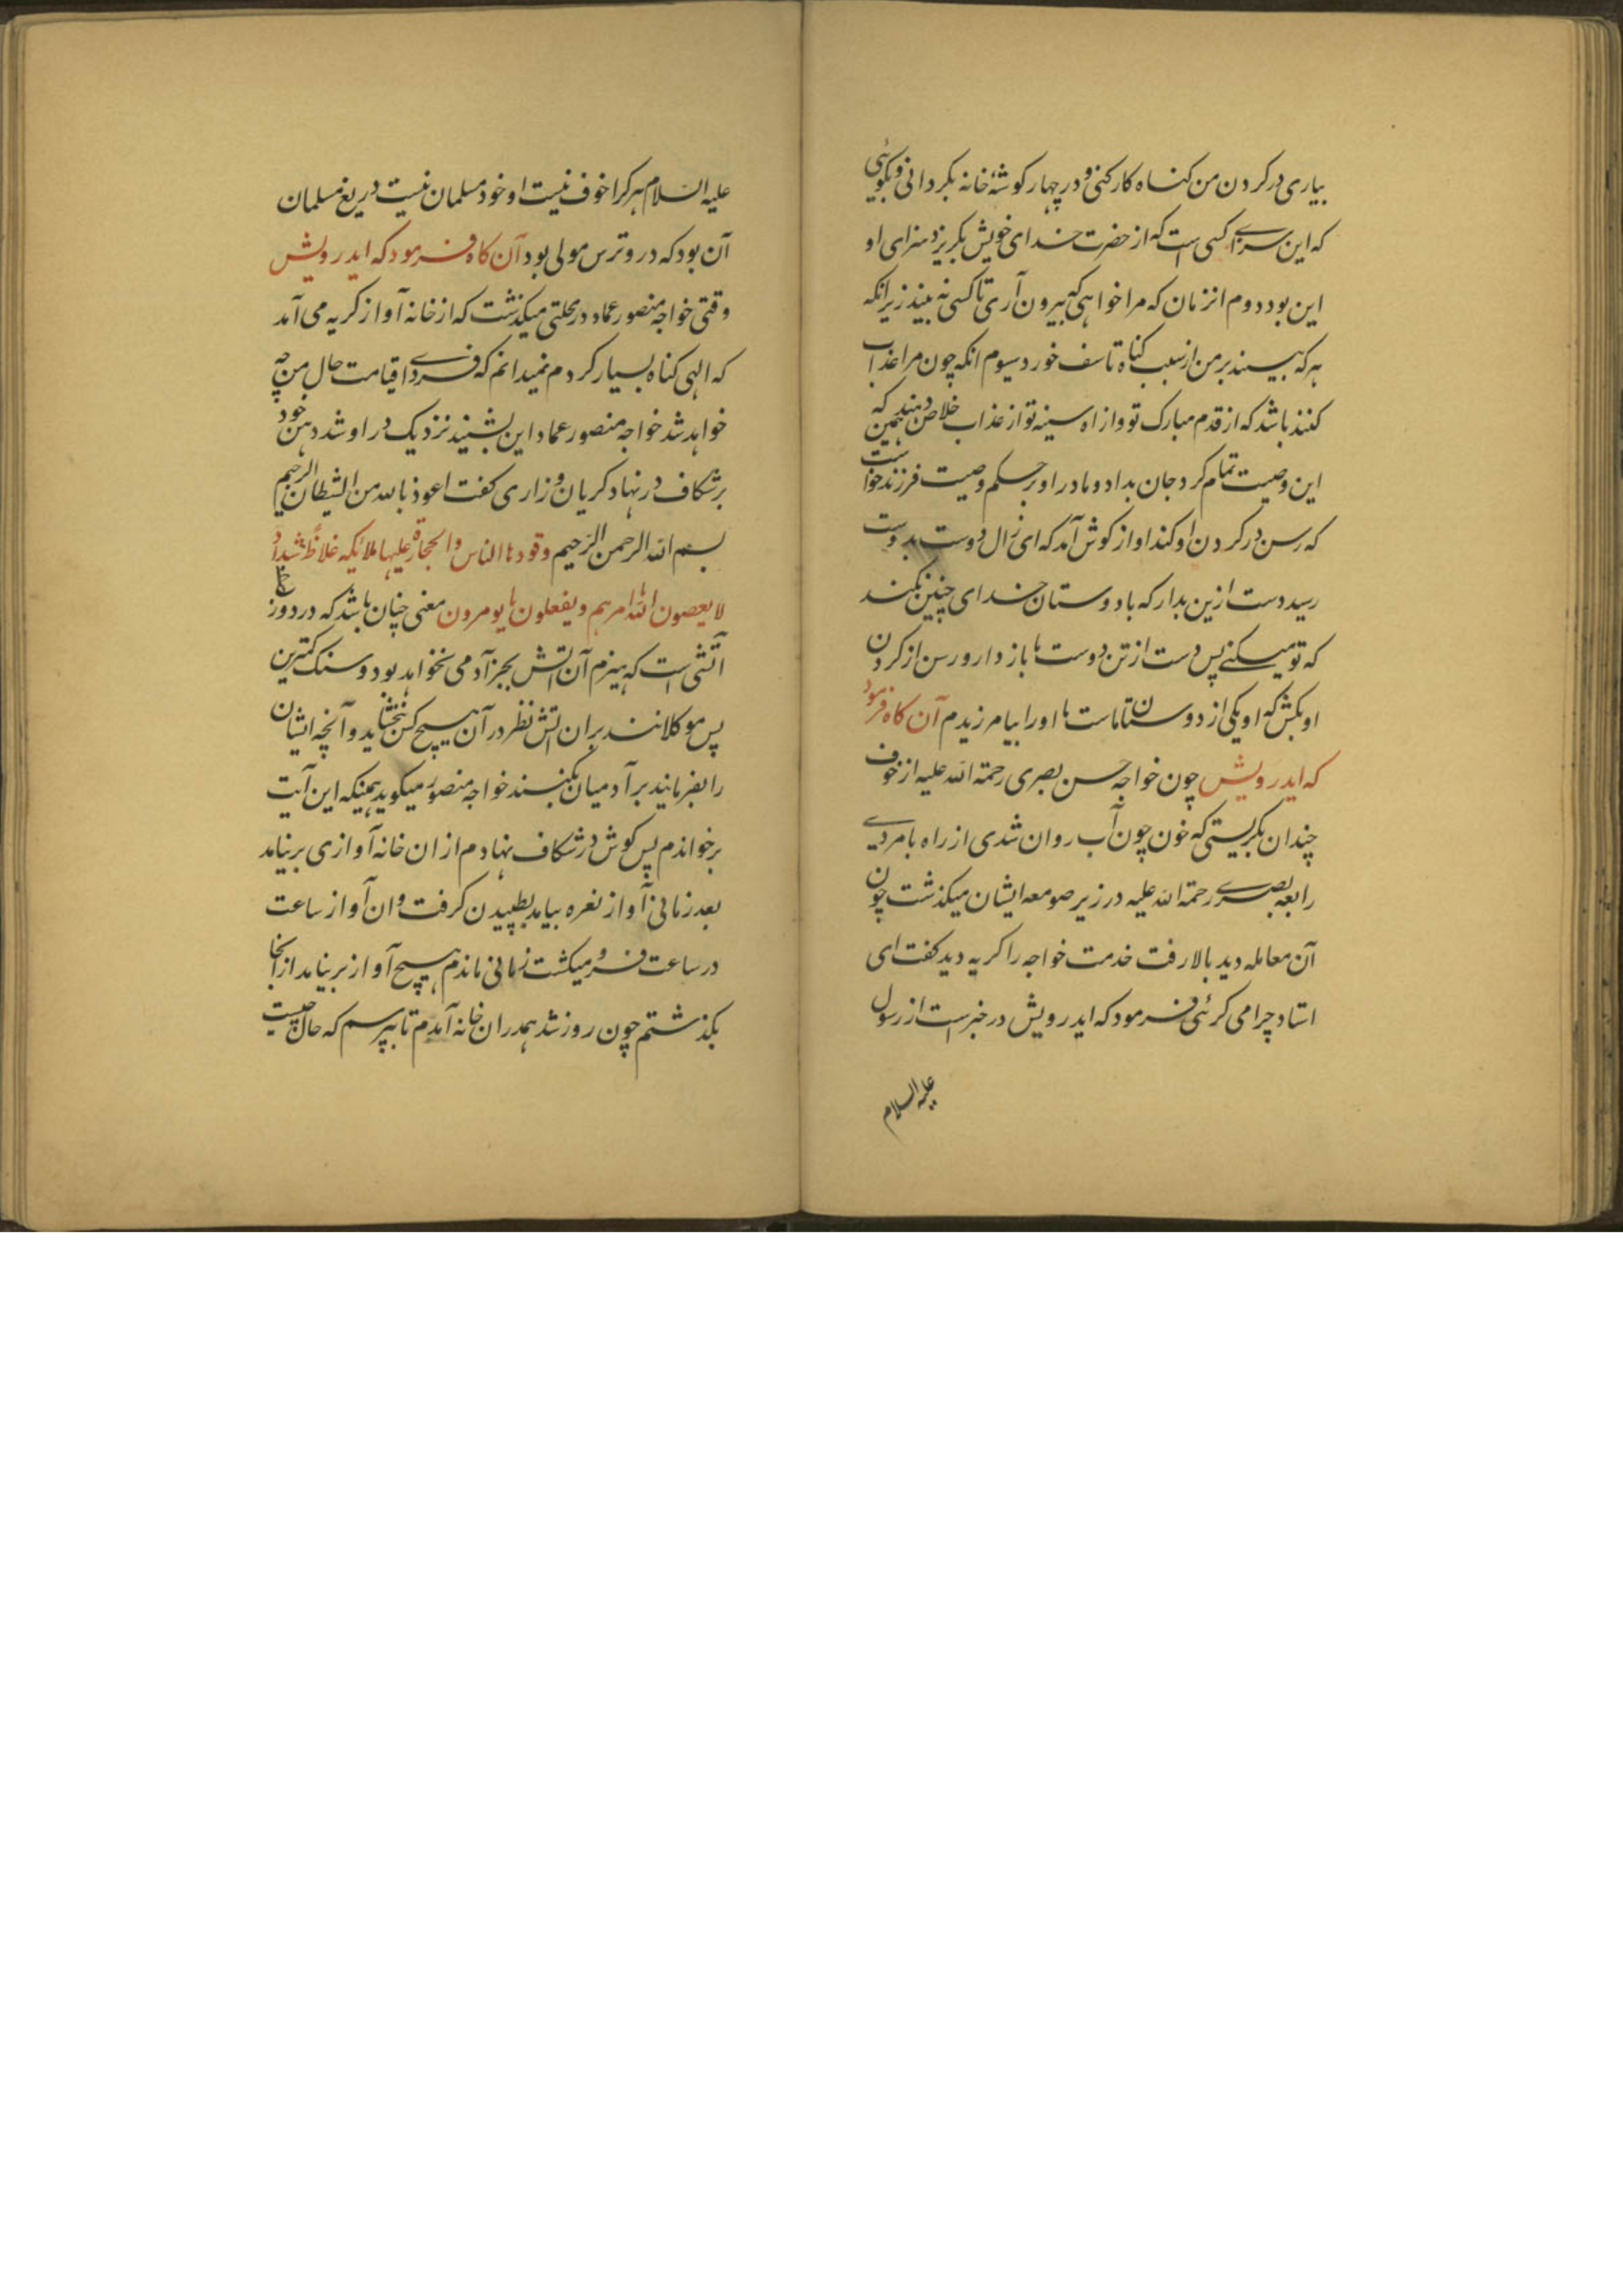 بیاری در کردن من گناه کار کنی و در چهار کوشهٔ خانه بگردانی و بگوئی
که این سزاے کسی است که از حضرت خدای خویش بگریزد سزای او
این بود دوم انزمان که مرا خواهی که بیرون آری تا کسی نه بیند زیرانکه
هر که بیند بر من از سبب گناه تاسف خورد سیوم انکه چون مرا عذاب
کنند باشد که از قدم مبارک تو و از اه سینه تو از عذاب خلاص دهند همین که
این وصیت تمام کرد جان بداد و مادر او بر حکم وصیت فرزند خواست
که رسن در کردن او کند اواز کوش آمد که ای زال دوست بدوست
رسید دست ازین بدار که با دوستان خدای چنین نکنند
که تو میکنے پس دست از تن دوست ما باز دار و رسن از کردن
او بکش که او یکی از دوستان ماست ما او را بیامرزیدم آن کاه فرمود
که ایدرویش چون خواجه حسن بصری رحمة الله علیه از خوف
چندان بگریستی که خون چون آب روان شدی از راه بامردے
رابعه بصرے رحمة الله علیه در زیر صومعه ایشان میکذشت چون
آن معامله دید بالا رفت خدمت خواجه را کریه دید کفت ای
استاد چرا می کرئی فرمود که ایدرویش در خبر است از رسول
علیه السلام
علیه السلام هر کرا خوف نیست او خود مسلمان نیست دریغ مسلمان
آن بود که درو ترس مولی بود آن کاه فرمود که ایدرویش
وقتی خواجه منصور عماد در محلتی میکذشت که از خانه آواز کریه می آمد
که الهی کناه بسیار کردم نمیدانم که فرداے قیامت حال من چه
خواهد شد خواجه منصور عماد این بشنید نزدیک در او شد دهن خود
بر شکاف در نهاد کریان و زاری کفت اعوذ بالله من الشیطان الرجیم
بسم الله الرحمن الرحیم وقودها الناس والحجارة علیها ملائکه غلاظ شداد
لا یعصون الله ما امرهم و یفعلون ما یومرون معنی چنان باشد که در دوزخ
آتشی است که هیزم آن اتش بجز آدمی نخواهد بود و سنک کمترین
پس موکلانند بران اتش نظر در آن هیچ کس نبخشاید و آنچه ایشان
را بفرمایند بر آدمیان بکنند خواجه منصور میکوید همینکه این آیت
برخواندم پس کوش در شکاف نهادم از ان خانه آوازی برنیامد
بعد زمانی آواز نعره بیامد بطپیدن کرفت و ان آواز ساعت
در ساعت فرو میکشت زمانی ماندم هیچ آواز برنیامد از انجا
بکذشتم چون روز شد همدران خانه آمدم تا بپرسم که حال چیست